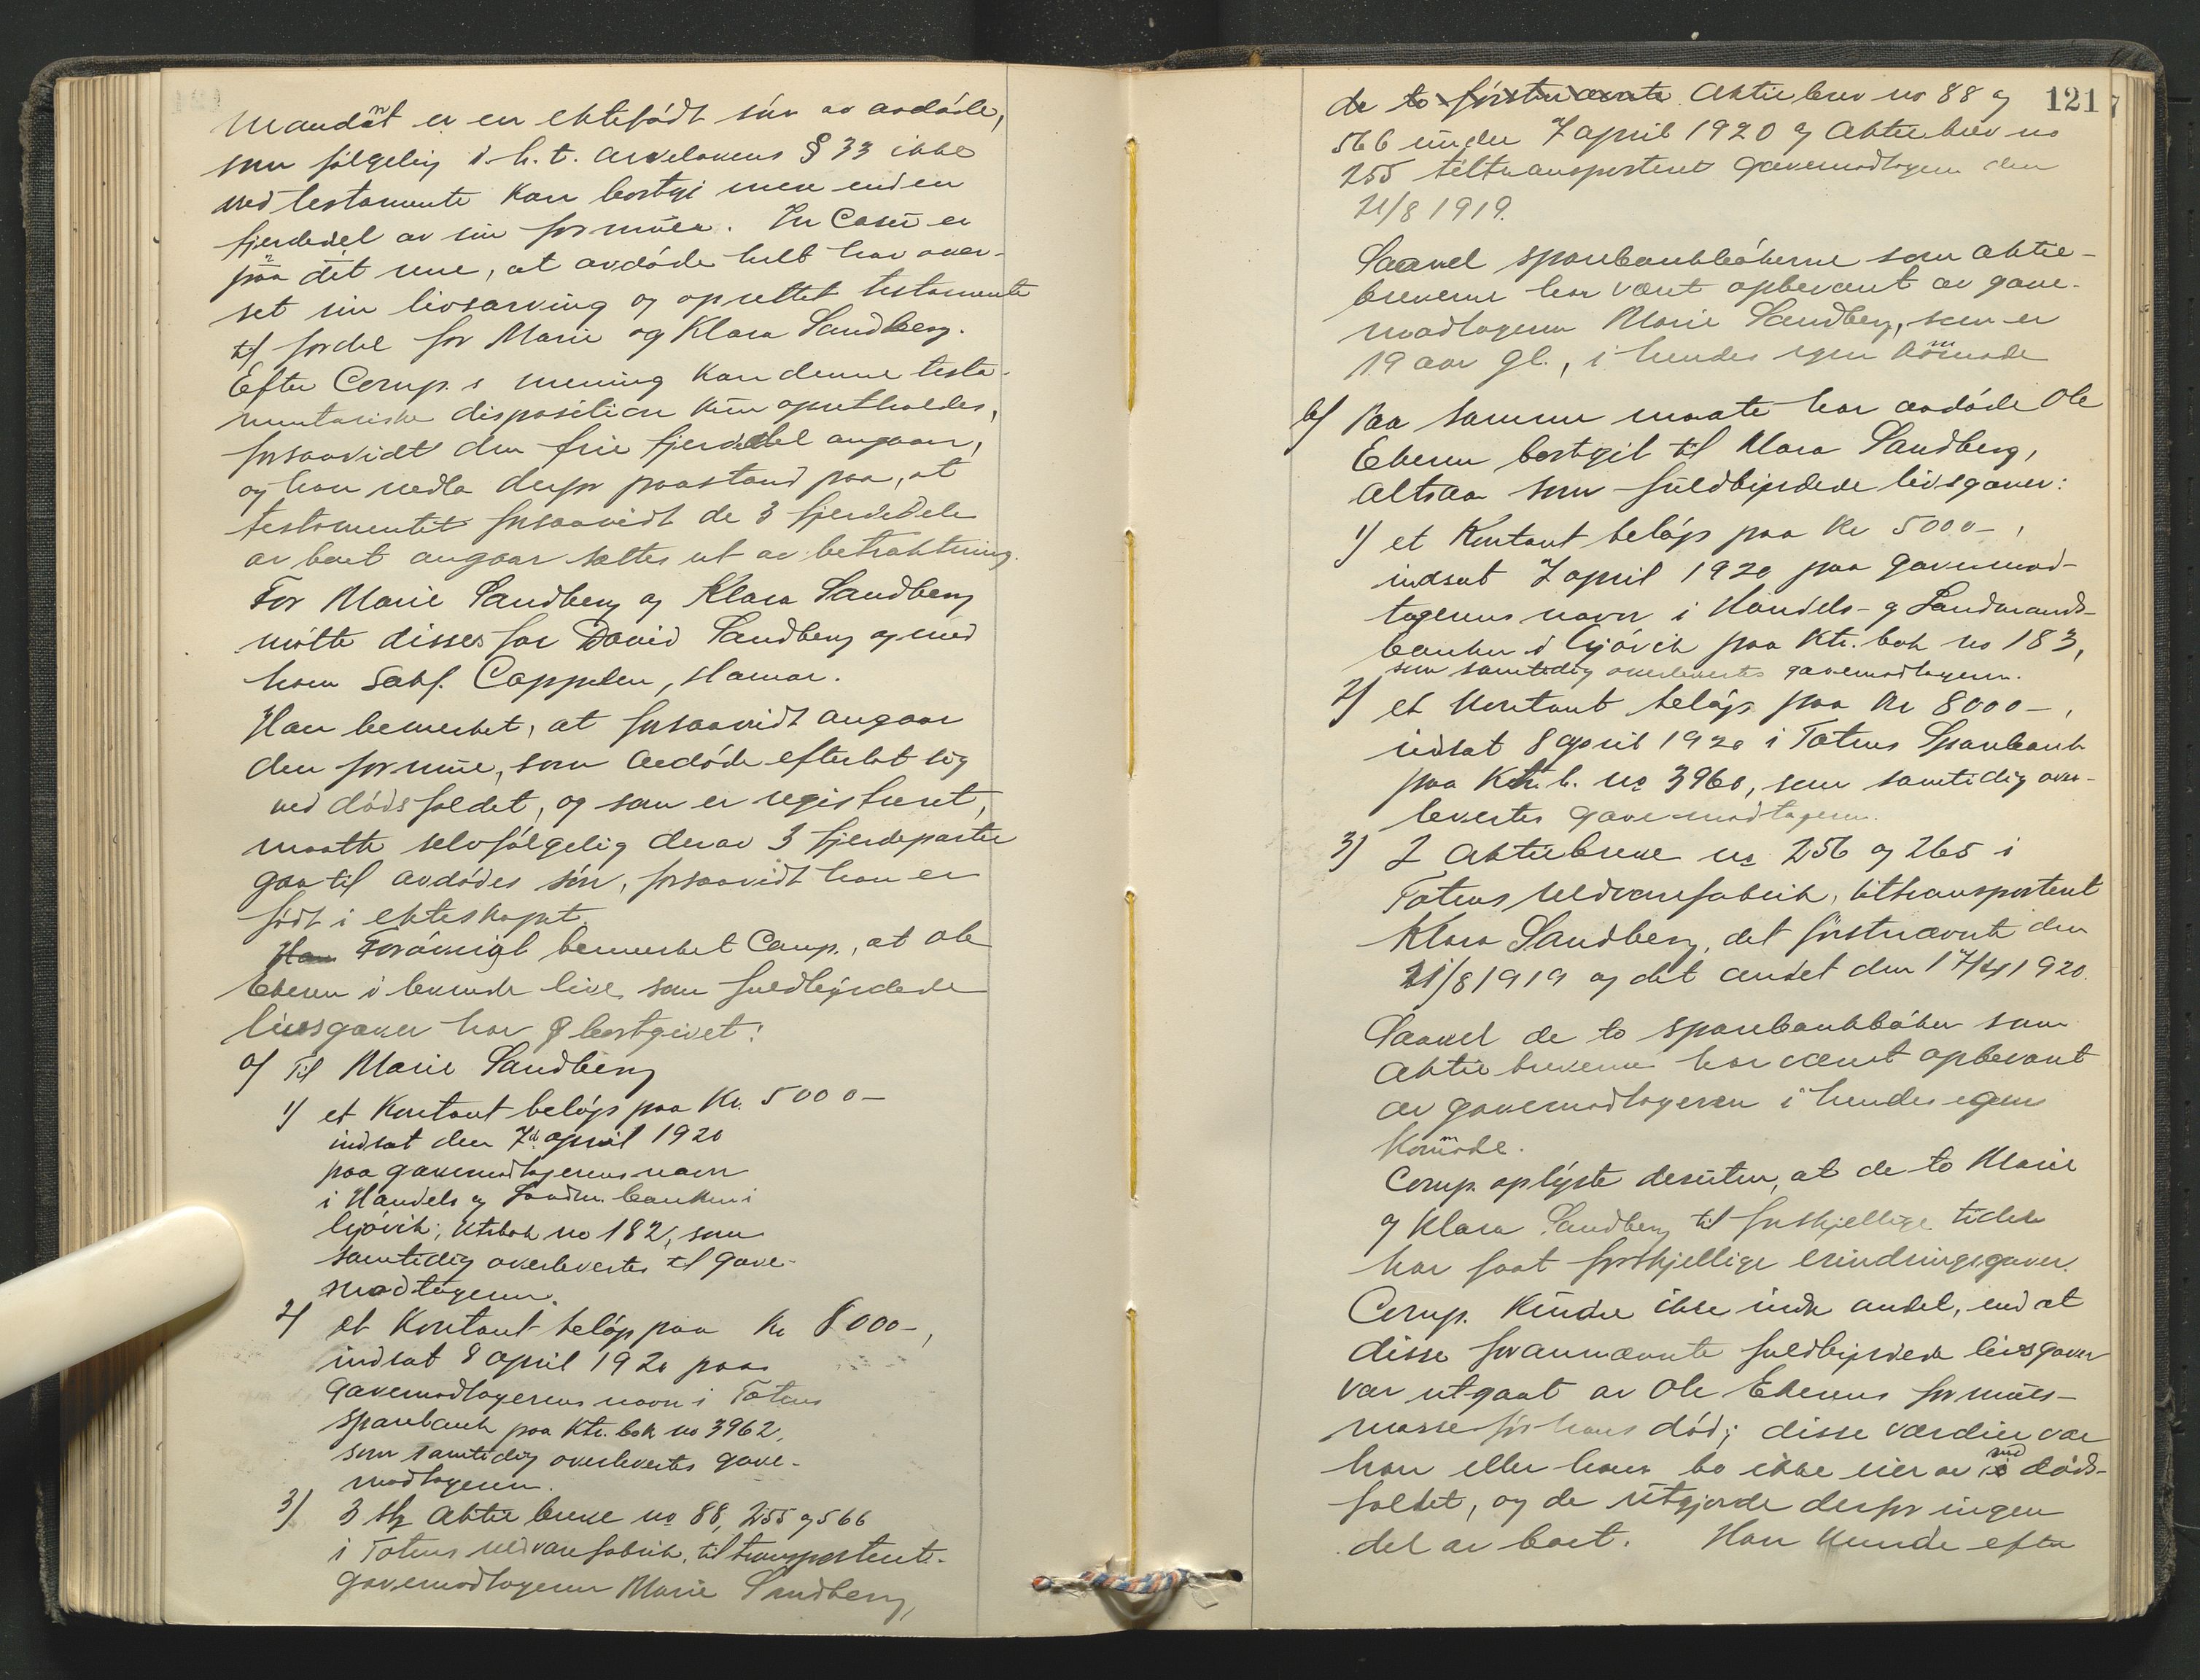 Mandant er en ektefødt søn av avdøde,
som følgelig i h. t. arvelovens § 33 ikke
ved testamente kan bortgi mere end en
fjerdedel av sin formue. In Casu er
paa det rene, at avdøde helt har over-
set sin livsarving og oprettet testamente
til fordel for Marie og Klara Sandberg.
Efter Comp.s mening kan denne testa-
mentariske disposition kun opretholdes,
forsaavidt den frie fjerdedel angaar,
og han nedla derfor paastand paa, at
testamentet forsaavidt de 3 fjerdedele
av boet angaar sættes ut av betraktning.
For Marie Sandberg og Klara Sandberg
møtte disses far David Sandberg og med
ham Sakf. Cappelen, Hamar.
Han bemerket, at forsaavidt angaar
den formue, som avdøde efterlot sig
ved dødsfaldet, og som er registreret,
maatte selvfølgelig derav 3 fjerdeparter
gaa til avdødes søn, forsaavidt han er
født i ekteskapet.
Han Forøvrigt bemerket Comp., at Ole
Ekeren i levende live som fuldbyrdede
livsgaver har bortgivet:
a/ Til Marie Sandberg
1/ et kontant beløp paa Kr. 5000-
indsat den 7d april 1920
paa gavemodtagerens navn
i Handels og Landm. banken i
Gjøvik; Ktrbok no 182, som
samtidig overlevertes til gave-
modtageren.
2/ et kontant beløp paa Kr 8000-,
indsat 8 april 1920 paa
gavemodtagerens navn i Totens
sparebank paa Ktr. bok no 3962,
som samtidig overlevertes gave-
modtageren.
3) 3 stk aktiebreve no 88, 255 og 566
i Totens Uldvarefabrik, tiltransportert
gavemodtageren Marie Sandberg,
121
de to førstnævnte Aktiebrev no 88 og
566 under 7 april 1920 og Aktiebrev no
255 tiltransportert gavemodtageren den
21/8 1919.
Saavel sparebankbøkerne som aktie-
brevene har været opbevaret av gave-
modtageren Marie Sandberg, som er
19 aar gl., i hendes egen kommode
b/ Paa samme maate har avdøde Ole
Ekeren bortgit til Klara Sandberg,
altsaa som fuldbyrdede livsgaver:
1/ et kontant beløp paa Kr 5000-,
indsat 7 april 1920 paa gavemod-
tagerens navn i Handels- og Landmands-
banken i Gjøvik paa Ktr. bok no 183,
som samtidig overlevertes gavemodtageren.
2/ et kontant beløp paa Kr 8000-,
indsat 8 april 1920 i Totens Sparebank
paa Ktr. b. no 3960, som samtidig over-
levertes gavemodtageren.
3) 2 Aktiebreve no 256 og 265 i
Totens Uldvarefabrik, tiltransportert
Klara Sandberg, det førstnævnte den
21/8 1919 og det andet den 17/4 1920.
Saavel de to sparebankbøker som
aktiebrevene har været opbevart
av gavemodtageren i hendes egen
kommode.
Comp. oplyste desuten, at de to Marie
og Klara Sandberg til forskjellige tider
har faat forskjellige erindringsgaver.
Comp. kunde ikke inde andet, end at
disse forannævnte fuldbyrdede livsgaver
var utgaat av Ole Ekerens formues-
masse før hans død; disse værdier var
han eller hans bo ikke eier av ved døds-
faldet, og de utgjorde derfor ingen
del av boet. Han kunde efter